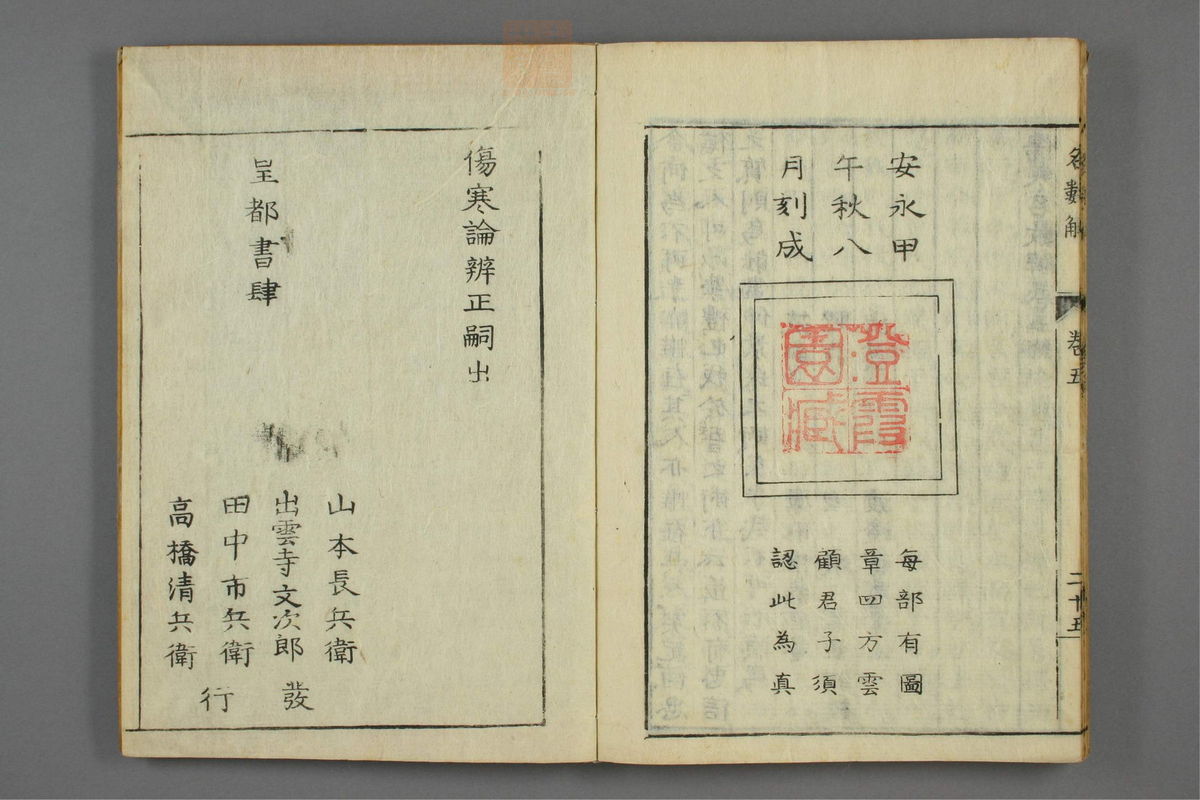 名數解
卷五
二十五
安永甲
午秋八
月刻成
澄霞
園藏
每部有圖
章四方雲
顧君子須
認此為真
傷寒論辨正嗣出
皇都書肆
山本長兵衛
出雲寺文次郎
田中市兵衛
高橋清兵衛
發
行